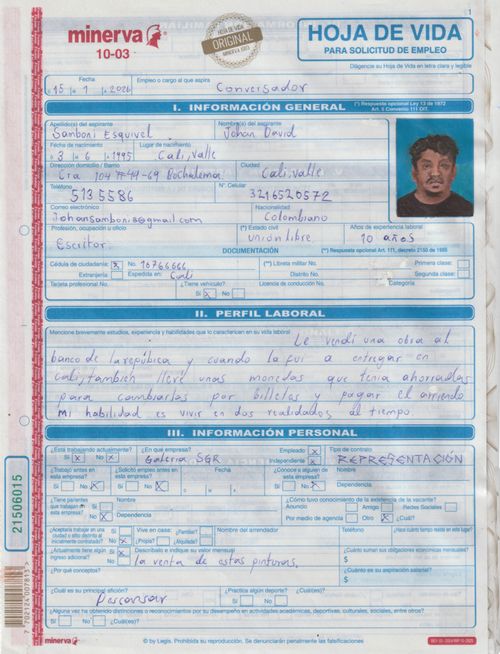 minerva
10-03
HOJA DE VIDA ORIGINAL MINERVA 1003
1
HOJA DE VIDA
PARA SOLICITUD DE EMPLEO
Diligencie su Hoja de Vida en letra clara y legible
Fecha
Empleo o cargo al que aspira
15 1 2026
Conversador
I. INFORMACIÓN GENERAL
(*) Respuesta opcional Ley 13 de 1972
Art. 5 Convenio 111 OIT.
Apellido(s) del aspirante
Nombre(s) del aspirante
Samboni Esquivel
Johan David
Fecha de nacimiento
Lugar de nacimiento
3 6 1995
Cali, Valle
Dirección domicilio / Barrio
Ciudad
Cra 104 # 44-69 Bochalema
Cali, Valle
Teléfono
N°. Celular
513 5586
3216520572
Correo electrónico
Nacionalidad
Johansamboni8@gmail.com
Colombiano
Profesión, ocupación u oficio
(*) Estado civil
Años de experiencia laboral
Escritor.
unión libre.
10 años
DOCUMENTACIÓN
(**) Respuesta opcional Art. 111, decreto 2150 de 1995
Cédula de ciudadanía: x No. 10766666
(**) Libreta militar No.
Primera clase:
Extranjería: Expedida en: Cali
Distrito No.
Segunda clase:
Tarjeta profesional No.
¿Tiene vehículo?
Licencia de conducción No.
Categoría
Sí x No
II. PERFIL LABORAL
Mencione brevemente estudios, experiencia y habilidades que lo caractericen en su vida laboral
Le vendí una obra al
banco de la república y cuando la fui a entregar en
Cali, también llevé unas monedas que tenía ahorradas
para cambiarlas por billetes y pagar el arriendo
Mi habilidad es vivir en dos realidades al tiempo
III. INFORMACIÓN PERSONAL
¿Está trabajando actualmente?
¿En qué empresa?
Empleado x
Tipo de contrato
Sí x No x
Galería SGR
Independiente x
REPRESENTACIÓN
¿Trabajó antes en esta empresa?
¿Solicitó empleo antes en esta empresa?
Fecha
¿Conoce a alguien de esta empresa?
Nombre
Sí No x
Sí No x
Sí No x
Dependencia
¿Tiene parientes que trabajen en esta empresa?
Nombre
¿Cómo tuvo conocimiento de la existencia de la vacante?
Anuncio
Amigo
Redes Sociales
Sí No x
Dependencia
Por medio de agencia
Otro x
¿Cuál?
¿Aceptaría trabajar en una ciudad o sitio distinto al inicialmente contratado?
Vive en casa:
¿Familiar?
Nombre del arrendador
Teléfono
¿Hace cuánto tiempo reside en este lugar?
Sí No x
¿Propia?
¿Alquilada?
¿Actualmente tiene algún ingreso adicional?
Descríbalo e indique su valor mensual
¿Cuánto suman sus obligaciones económicas mensuales?
Sí No x
la venta de estas pinturas.
$
¿Por qué conceptos?
¿Cuánto es su aspiración salarial?
$
¿Cuál es su principal afición?
¿Practica algún deporte?
¿Cuál(es)?
Descansar
Sí No
¿Alguna vez ha obtenido distinciones o reconocimientos por su desempeño en actividades académicas, deportivas, culturales, sociales, entre otros?
Sí No ¿Cuál(es)?
minerva
© by Legis. Prohibida su reproducción. Se denunciarán penalmente las falsificaciones
21506015